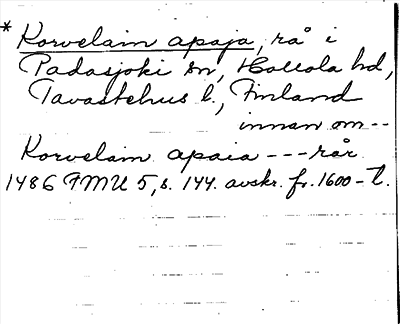 * Korvelain apaja, rå i
Padasjoki sn, Hollola hd,
Tavastehus l., Finland
innan om--
Korvelain apaia --- rår
1486 FMU 5, s. 144. avskr. fr. 1600-t.